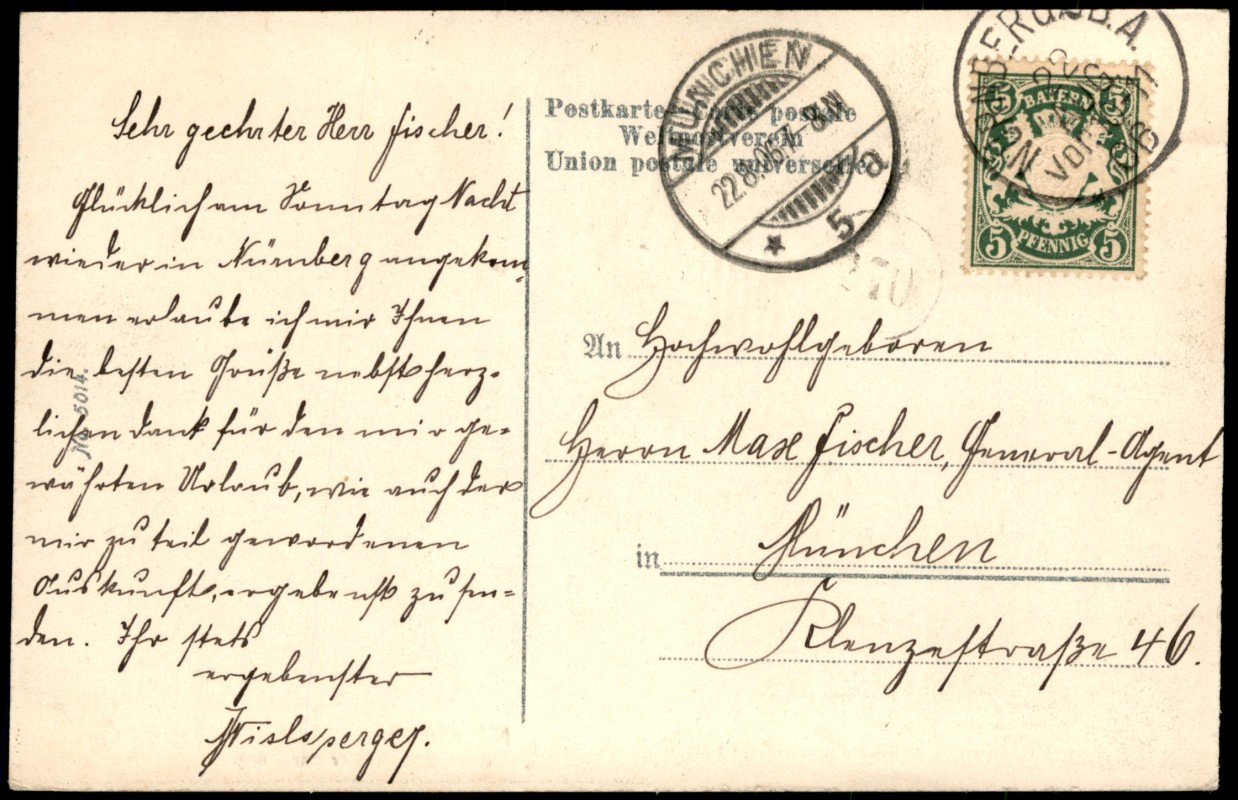 Sehr geehrter Herr Fischer!
Glücklich am Sonntag Nacht
wieder in Nürnberg angekom
men erlaube ich mir Ihnen
die besten Grüße nebst herz-
lichen Dank für den mir ge-
währten Urlaub, wie auch der
mir zu teil gewordenen
Auskunft, ergebenst zu sen-
den. Ihr stets
ergebenster
No 5014.
Postkarte - Carte postale
Weltpostverein
Union postale universelle
MÜNCHEN
22.8.06. 7-8.N
5 a
270
NBERG B.A.
VOR
5 BAYERN 5
5 PFENNIG 5
An Hochwohlgeboren
Herrn Max Fischer, General-Agent
in München
Klenzestraße 46.